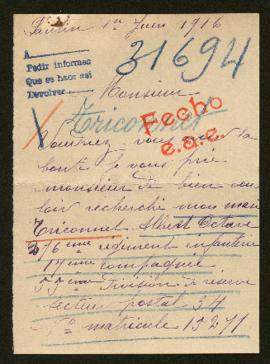 Pantin 1er Juin 1916
31694
A
Pedir informes
Que se haor asi
Devolver
Monsieur
Triconnet
Fecho
e.a.e.
Voudriez vous avoir la
bonté je vous prie
monsieur de bien vou
loir recherché mon mari
Triconnet Albert Octave
276 eme regiment infanterie
17 eme compagnie
55 eme division de réserve
secteur postal 34
matricule 15271